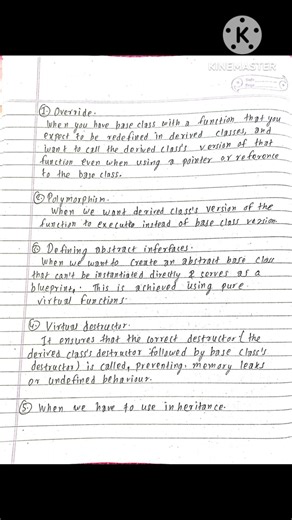 K
Made with
KINEMASTER
① Override.
When you have base class with a function that you
expect to be redefined in derived classes, and
want to call the derived class's version of that
function even when using a pointer or reference
to the base class.
② Polymorphism.
When we want derived class's version of the
function to execute instead of base class version
③ Defining abstract inferfaces.
When we want to create an abstract base class
that can't be instantiated directly & serves as a
blueprint,. This is achieved using pure
virtual functions.
④ Virtual destructor.
It ensures that the correct destructor (the
derived class's destructor followed by base class's
destructor) is called, preventing memory leaks
or undefined behaviour.
⑤ When we have to use inheritance.